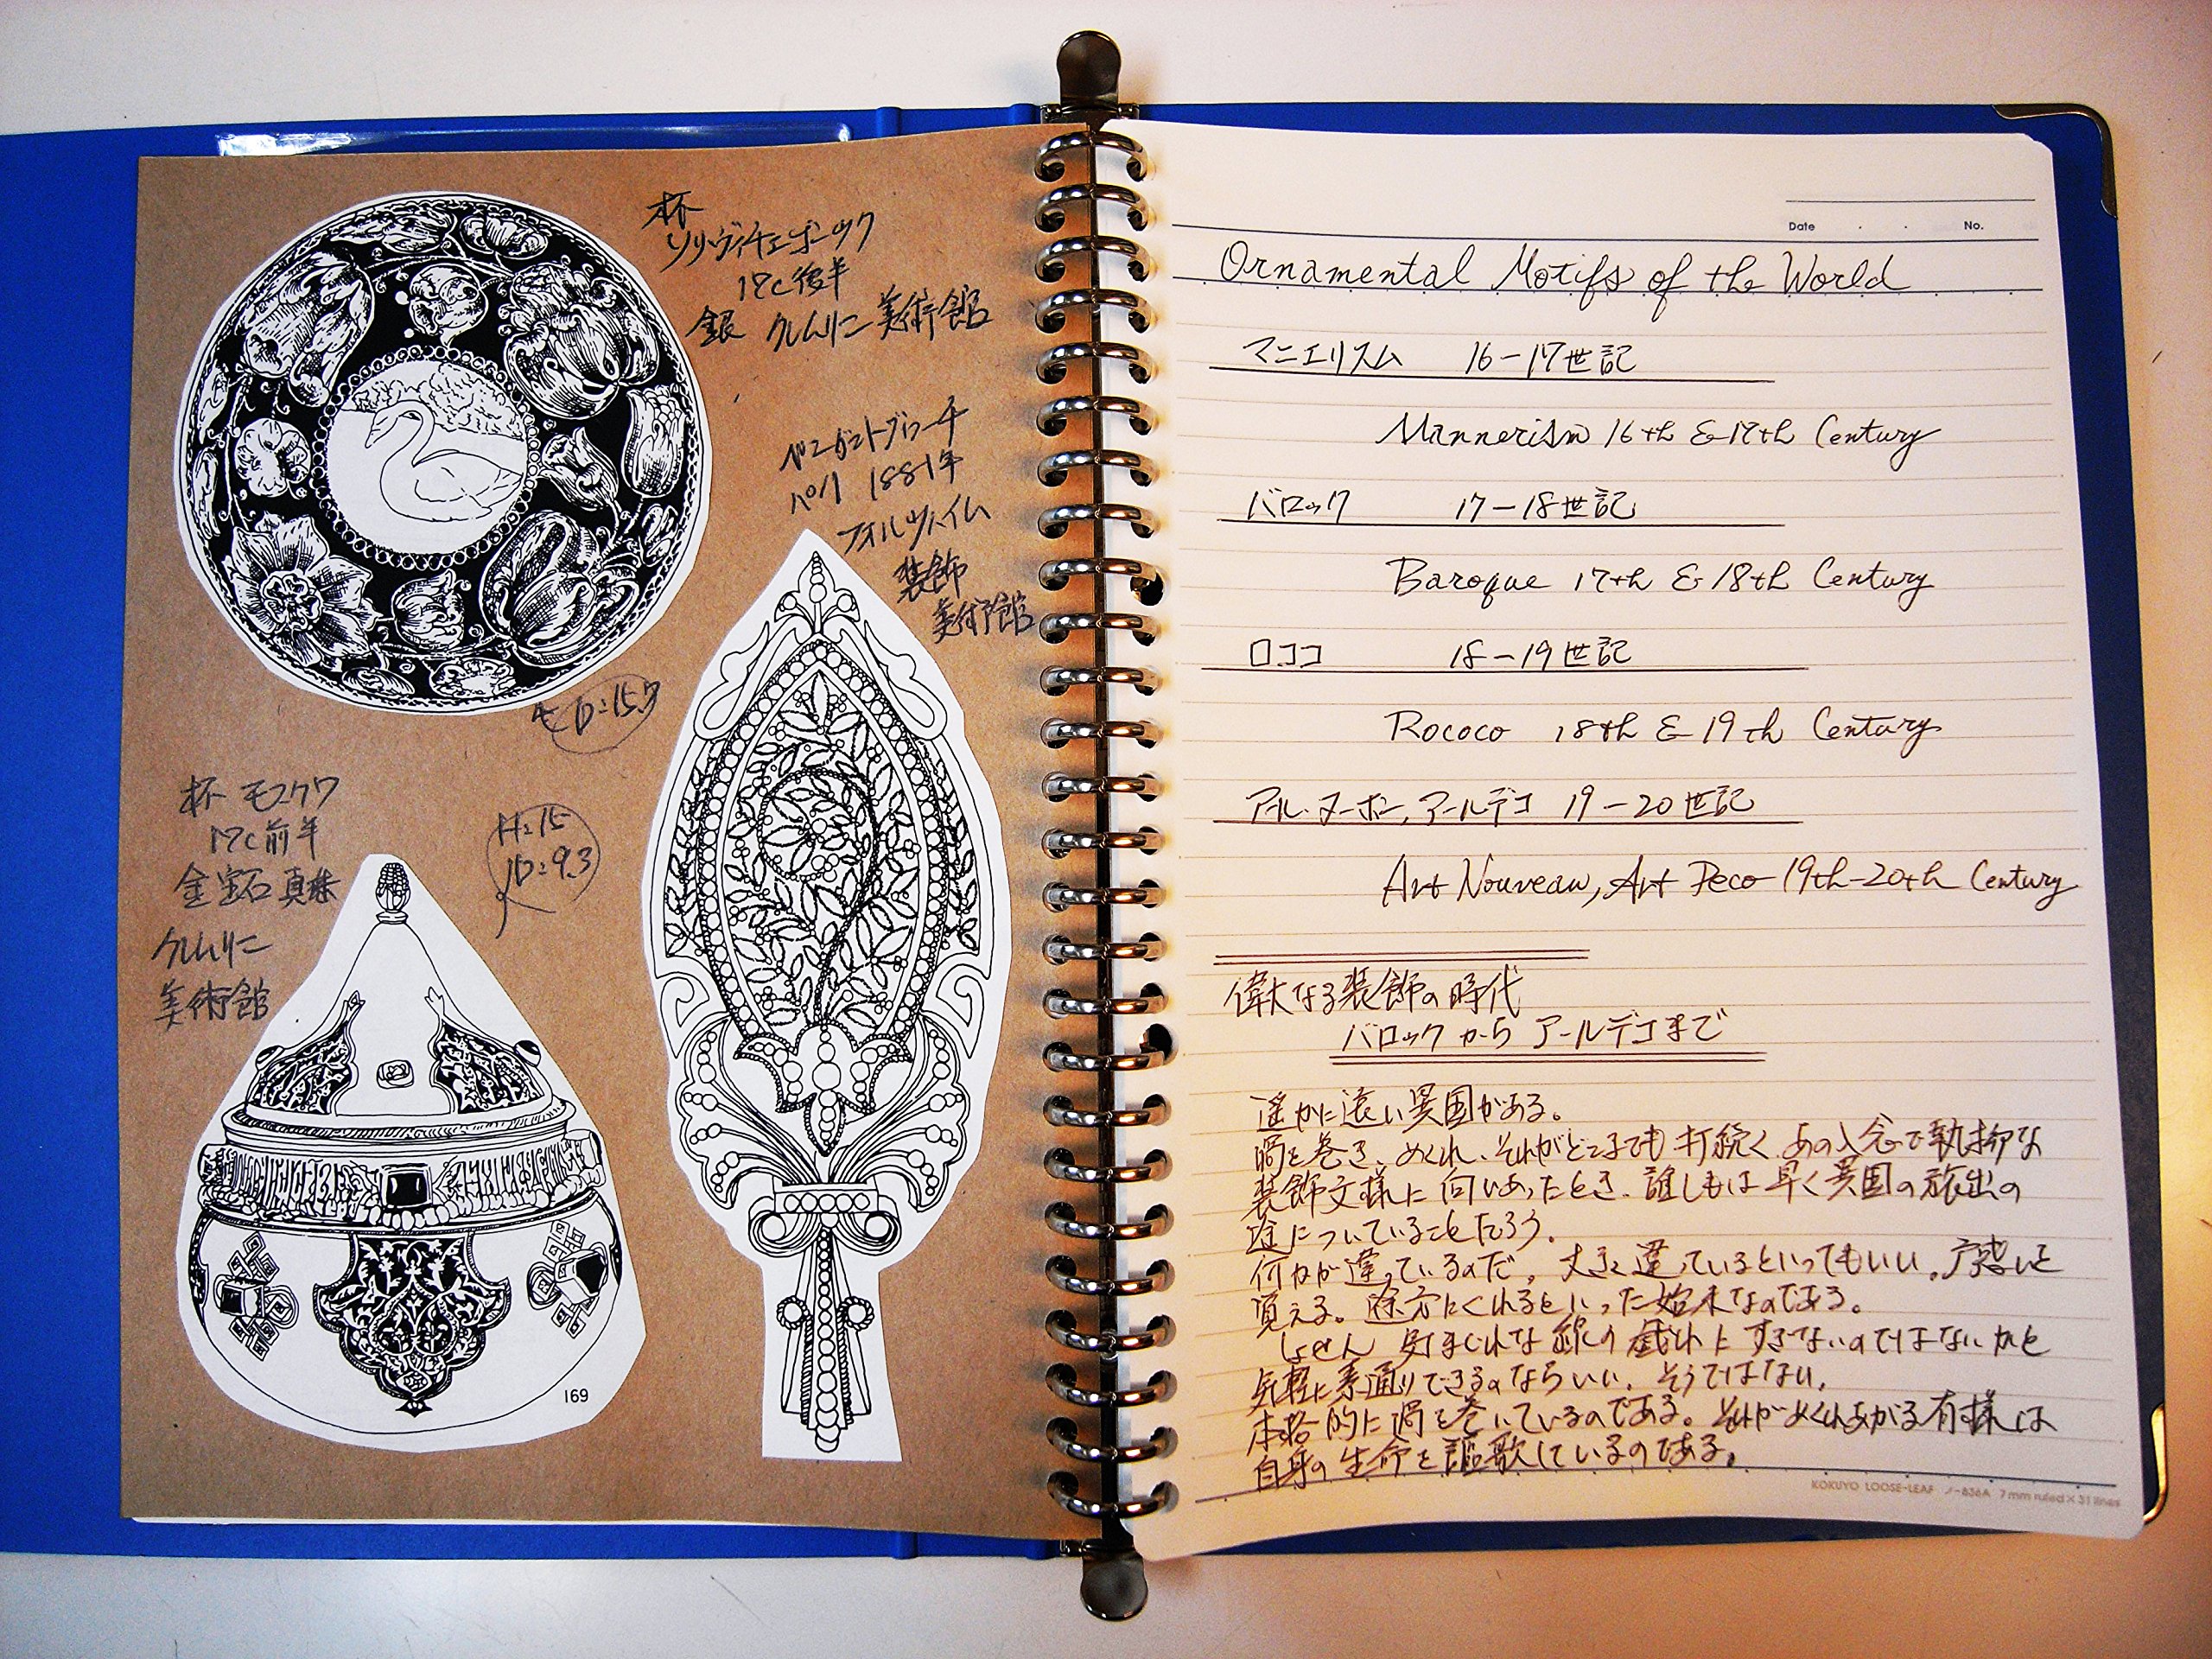 杯
ソリヴィチェゴーツク
17c後半
銀 クレムリン美術館
D=15.7
ペンダントブローチ
パリ 1881年
フォルツハイム
装飾
美術館
杯 モスクワ
17c前半
金 宝石 真珠
クレムリン
美術館
H=15
D=9.3
169
Date . . No.
Ornamental Motifs of the World
マニエリスム 16-17世記
Mannerism 16th & 17th Century
バロック 17-18世記
Baroque 17th & 18th Century
ロココ 18-19世記
Rococo 18th & 19th Century
アール・ヌーボー,アールデコ 19-20世記
Art Nouveau, Art Deco 19th-20th Century
偉大なる装飾の時代
バロックからアールデコまで
遥かに遠い異国がある。
渦を巻き、めくれ、それがどこまでも打続くあの入念で執拗な
装飾文様に向いあったとき、誰しもは早く異国の旅出の
途についていることだろう。
何かが違っているのだ。大きく違っているといってもいい。戸惑いを
覚える。途方にくれるといった始末なのである。
しょせん 気まぐれな線の戯れにすぎないのではないかと
気軽に素通りできるのならいい。そうではない。
本格的に渦を巻いているのである。それがめくれあがる有様は
自身の生命を謳歌しているのである。
KOKUYO LOOSE-LEAF ノ-836A 7mm ruled×31 lines